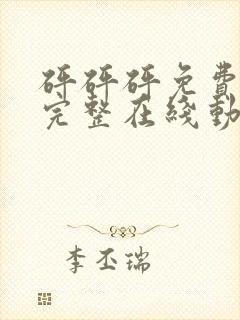 砰砰砰免费
完整在线动
李丕瑞